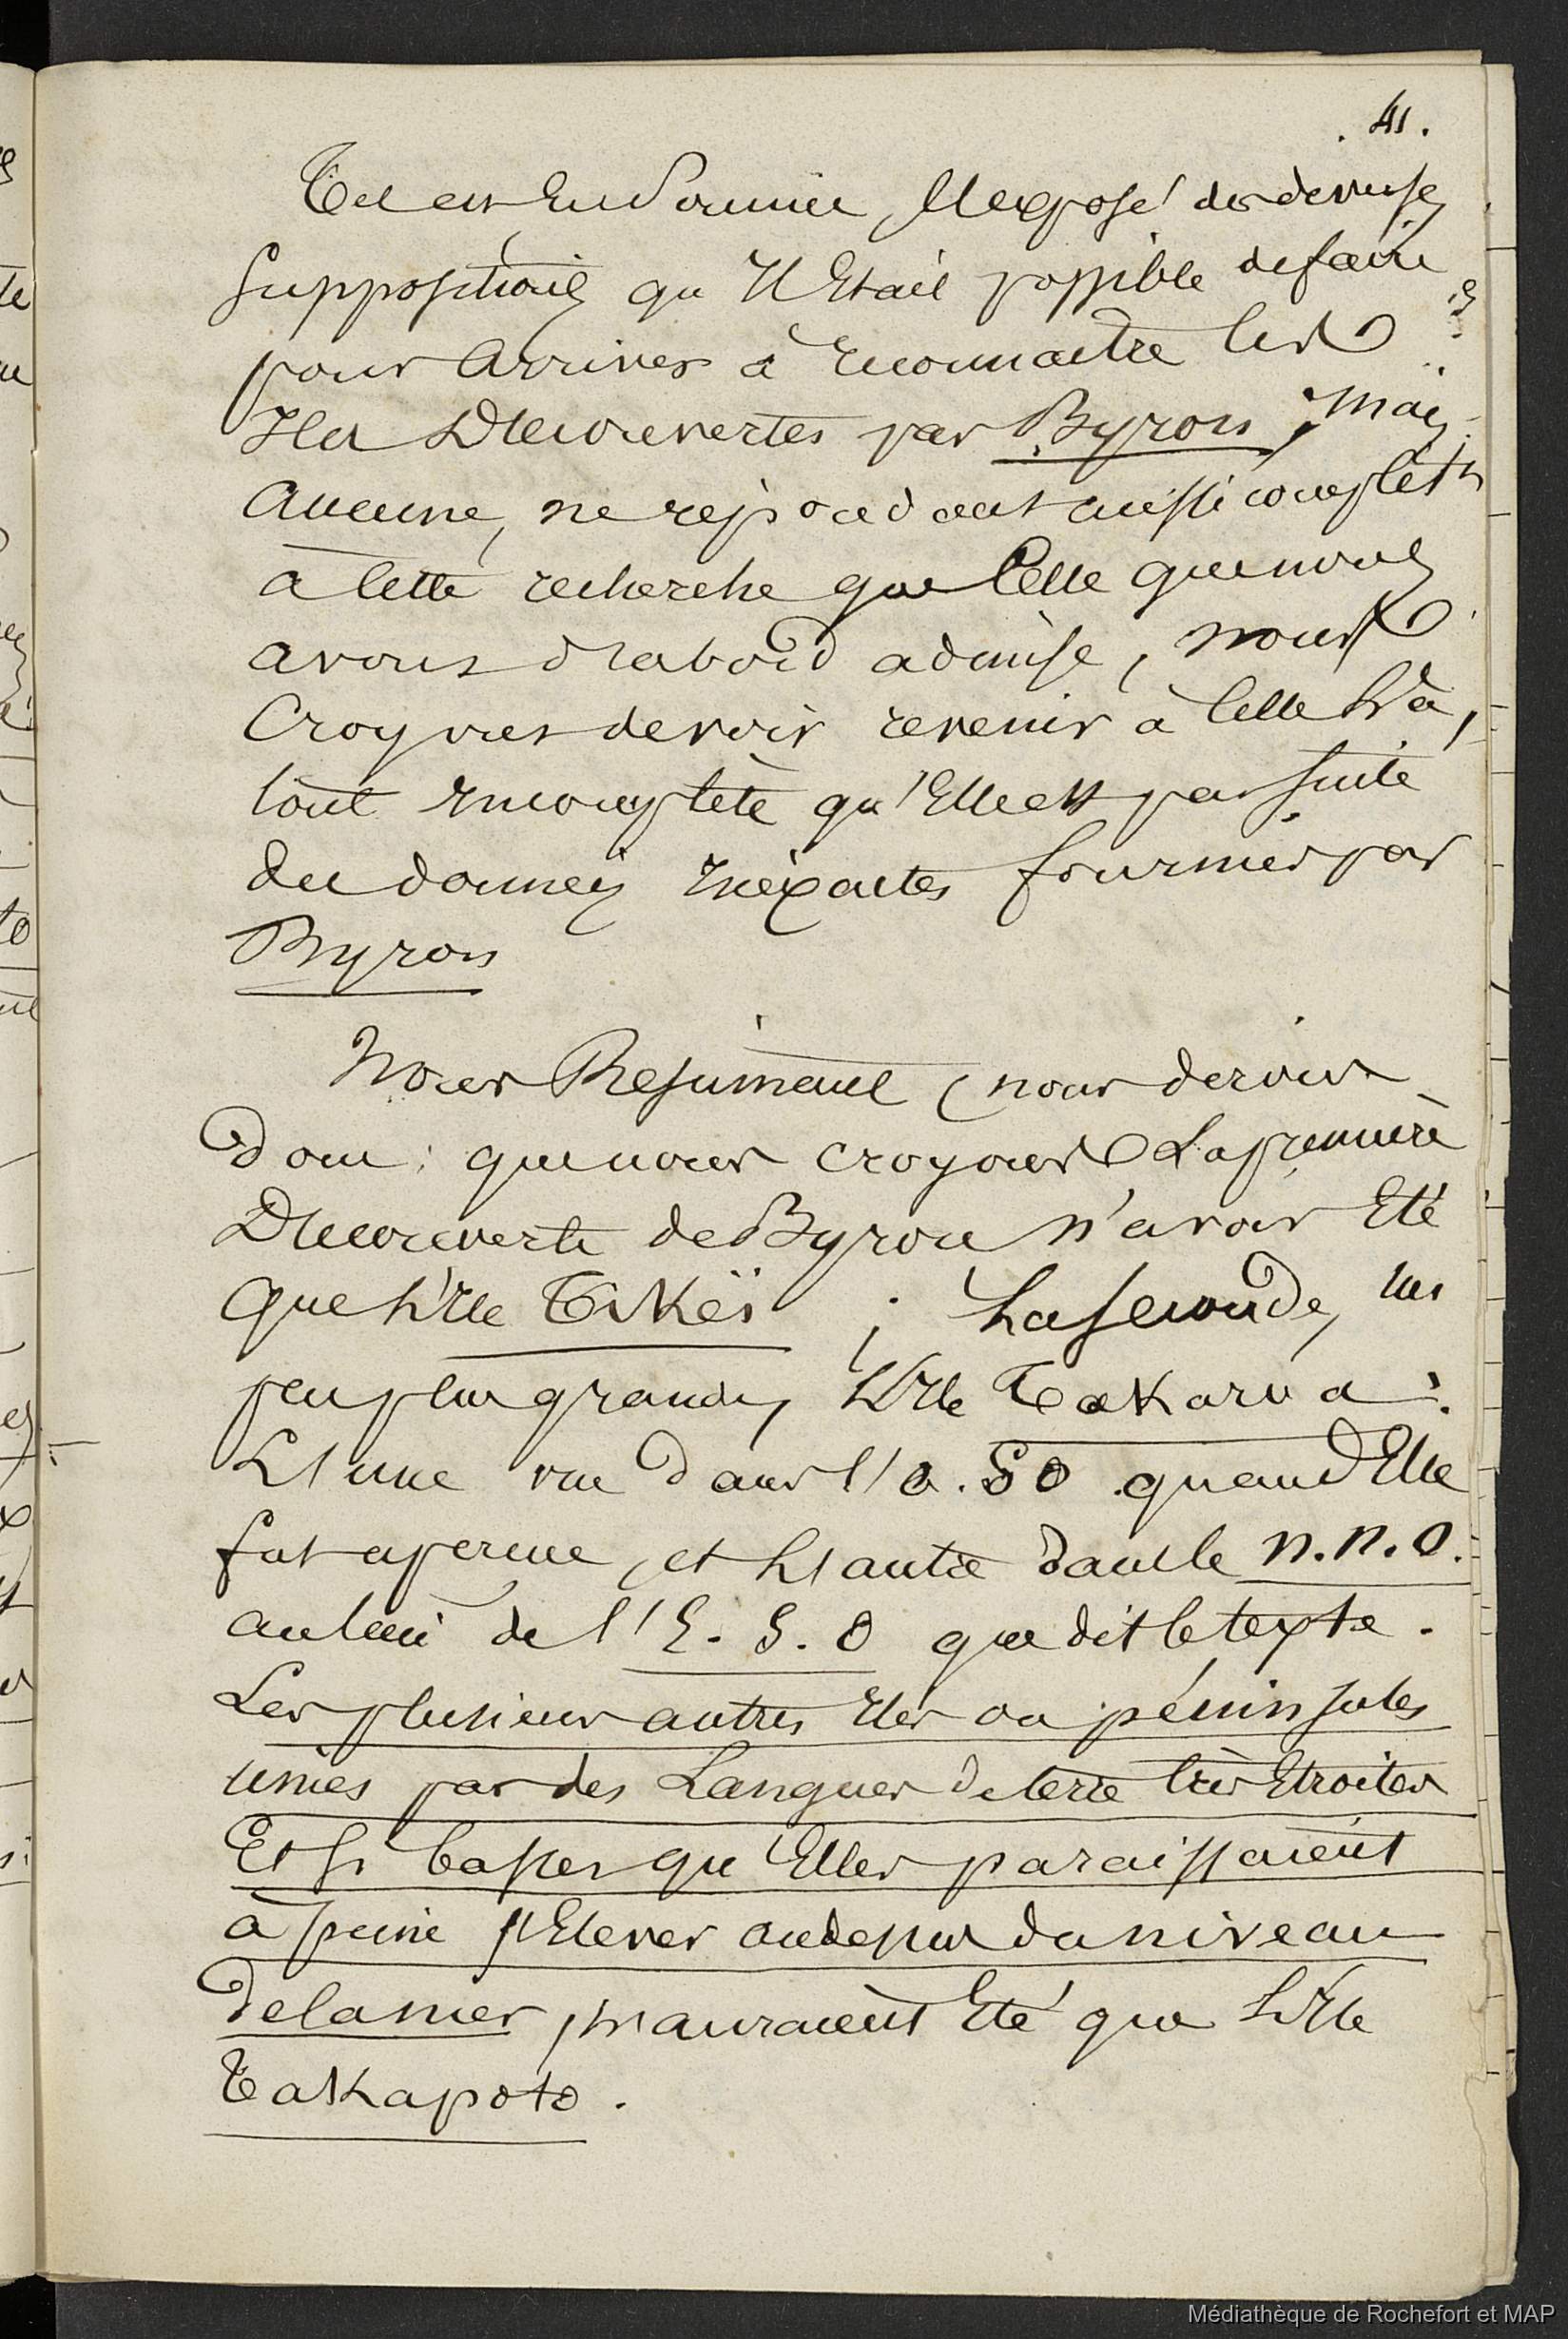 . 41 .
Tel est En Somme, l'exposé des diverses
suppositions qu'Il Etait possible de faire
pour arriver à reconnaitre les
Iles Découvertes par Byron ; Mais
Aucune, ne répondant aussi complètt
à Cette recherche que Celle que nous
avons d'abord admise, nous
Croyons devoir revenir à Celle là,
tout Incomplète qu'Elle est par suite
des données Inéxactes fournies par
Byron
Nous Resumant, nous dirons
donc : que nous croyons La première
Découverte de Byron n'avoir Eté
que L'Ile Tikeï ; La seconde, un
peu plus grande, L'Ile Takaroa :
L'une vue dans l'O. SO quand Elle
fut aperçue, et L'autre dans le N.N.O.
au lieu de l'E. S. O que dit le texte .
Les plusieurs autres Iles ou péninsules
unies par des Langues de terre très Etroites
Et si basses qu'Elles paraissaient
à peine s'Elever au dessus du niveau
de la mer, n'auraient Eté que L'Ile
Takapoto .
Médiathèque de Rochefort et MAP